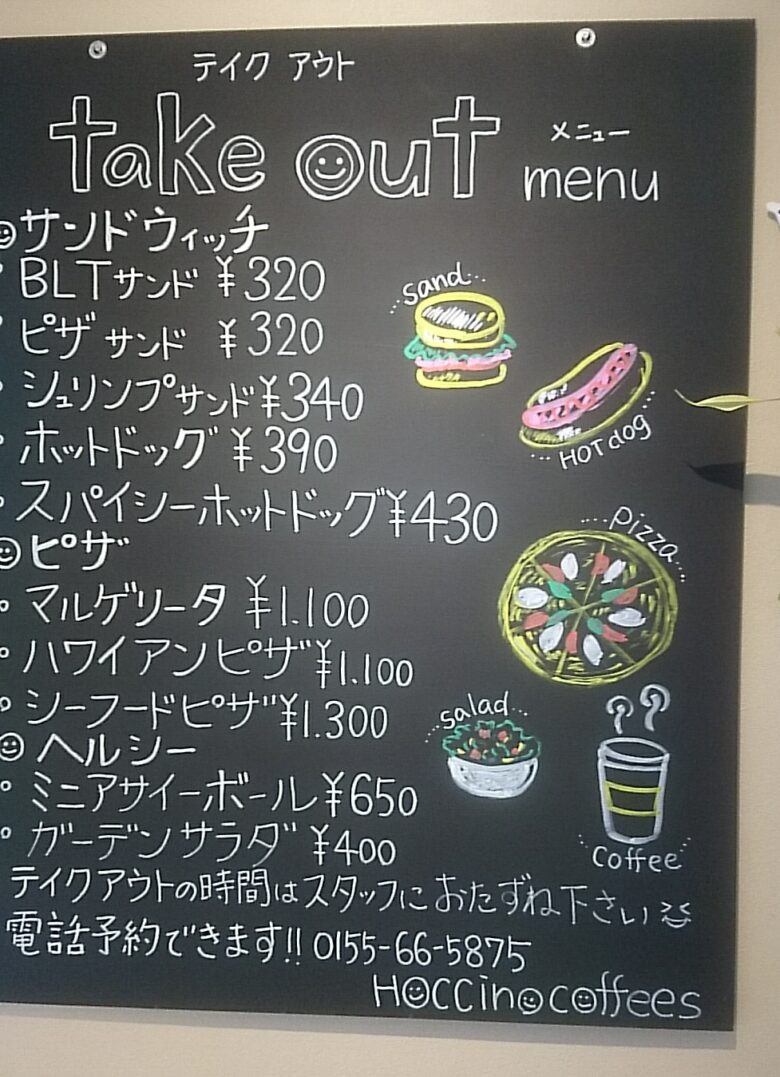 テイク アウト
take out menu
メニュー
サンドウィッチ
BLTサンド ¥320
ピザサンド ¥320
シュリンプサンド ¥340
ホットドッグ ¥390
スパイシーホットドッグ ¥430
ピザ
マルゲリータ ¥1.100
ハワイアンピザ ¥1.100
シーフードピザ ¥1.300
ヘルシー
ミニアサイーボール ¥650
ガーデンサラダ ¥400
テイクアウトの時間はスタッフにおたずね下さい
電話予約できます!! 0155-66-5875
Hoccino coffees
...sand...
...HOTdog...
...pizza...
...salad...
...coffee...